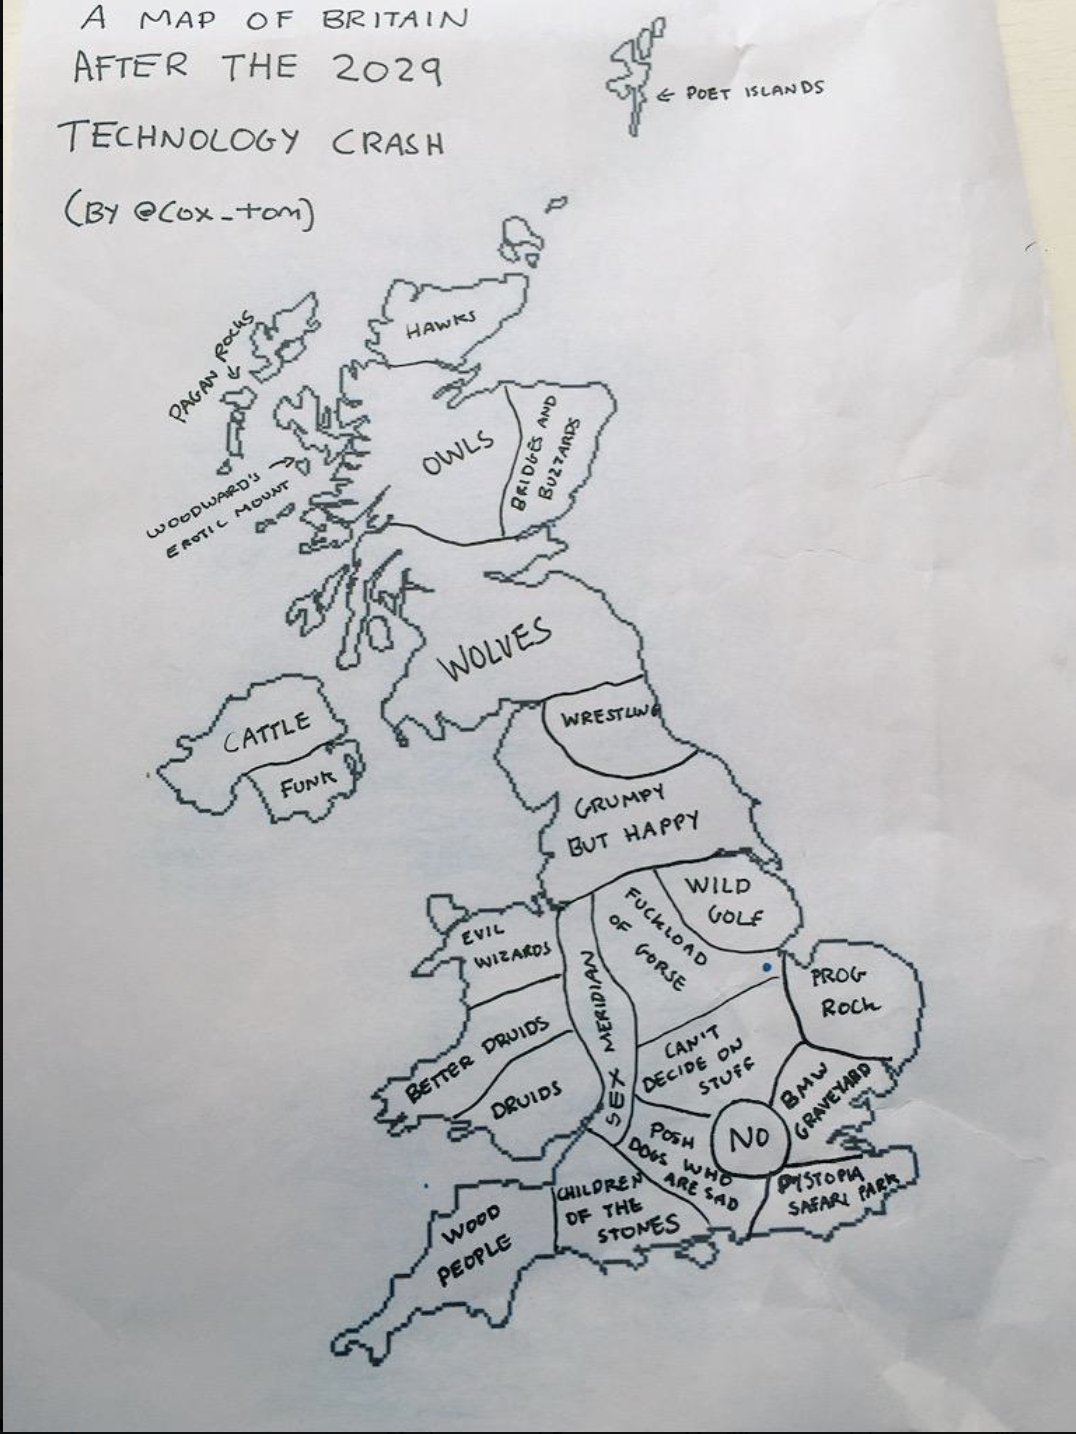 A MAP OF BRITAIN
AFTER THE 2029
TECHNOLOGY CRASH
(BY @COX_TOM)
← POET ISLANDS
HAWKS
PAGAN ROCKS
OWLS
BRIDGES AND
BUZZARDS
WOODWARD'S
EROTIC MOUNT
WOLVES
CATTLE
FUNK
WRESTLING
GRUMPY
BUT HAPPY
WILD
GOLF
FUCKLOAD
OF GORSE
EVIL
WIZARDS
SEX MERIDIAN
PROG
ROCK
BETTER DRUIDS
DRUIDS
CAN'T
DECIDE ON
STUFF
BMW
GRAVEYARD
NO
POSH
DOGS WHO
ARE SAD
DYSTOPIA
SAFARI PARK
CHILDREN
OF THE
STONES
WOOD
PEOPLE